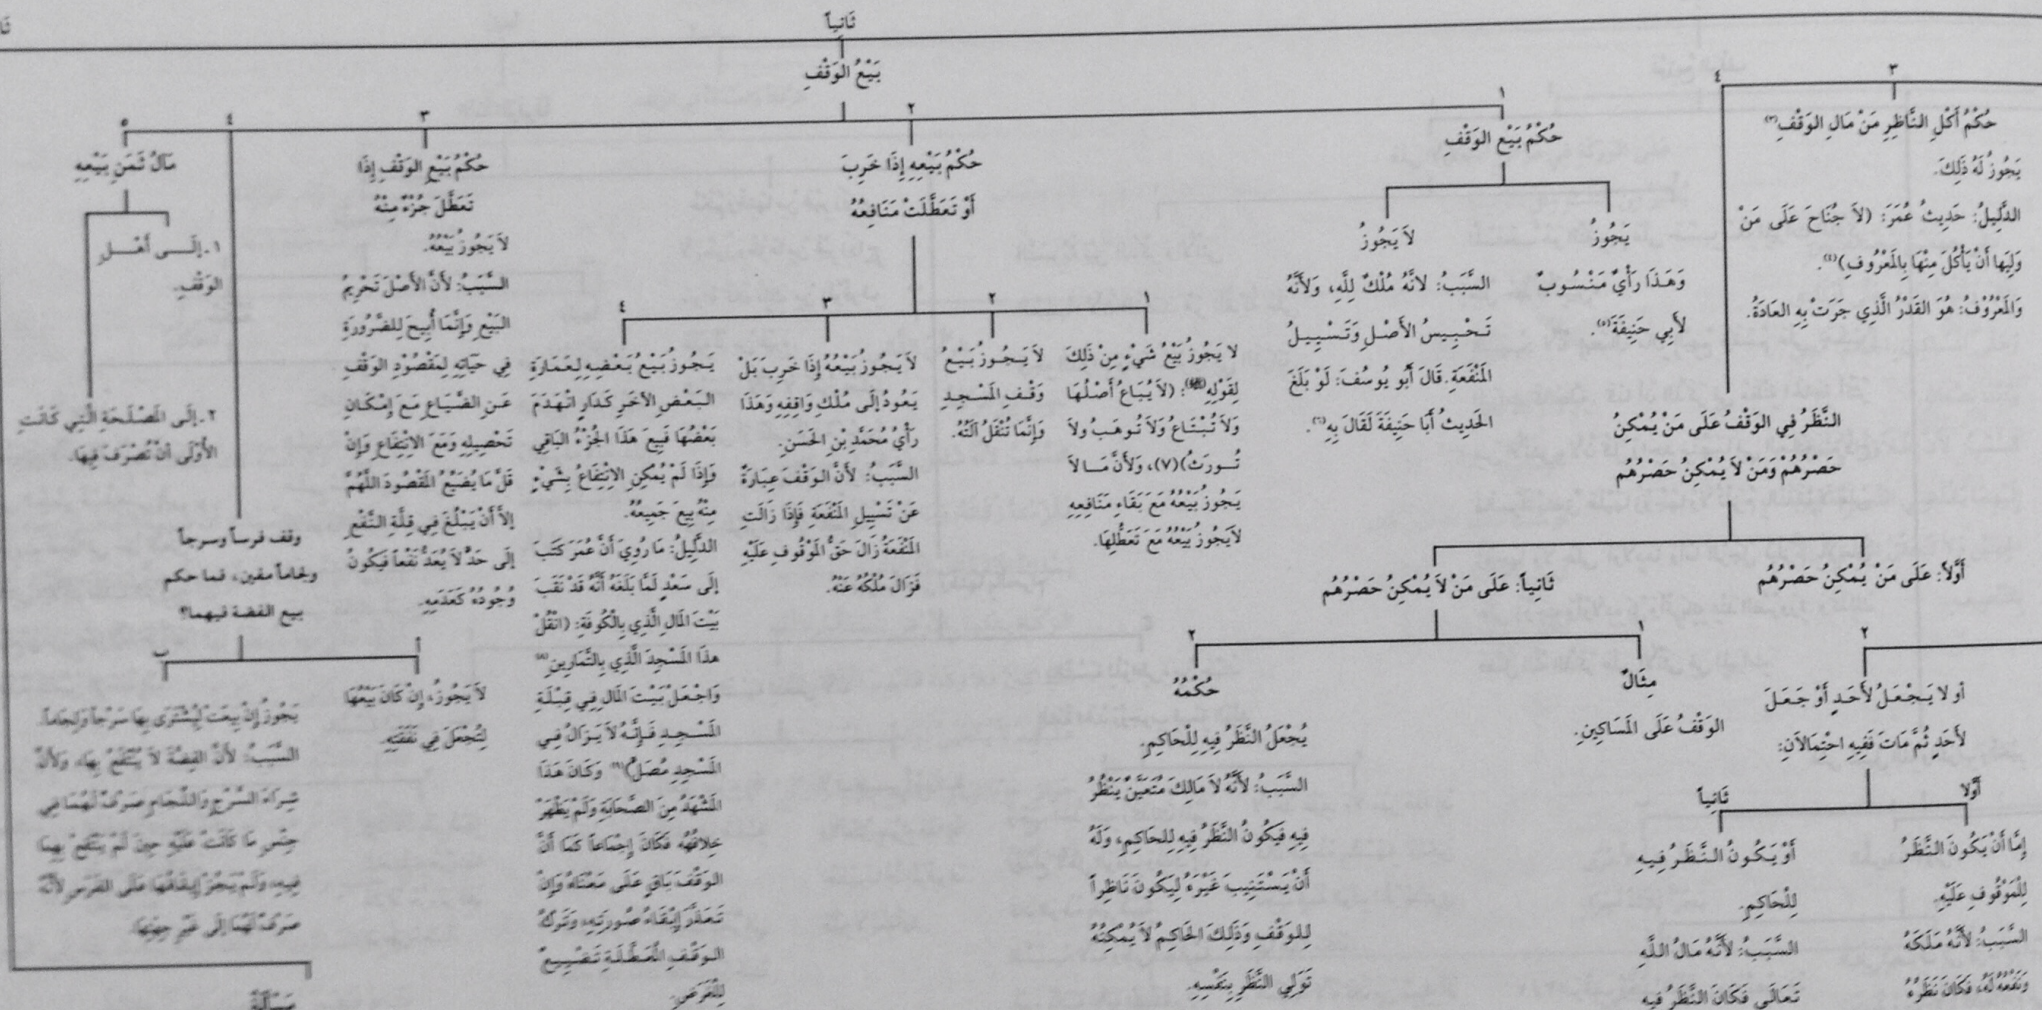 ثَانِياً
بَيْعُ الوَقْفِ
٣
حُكْمُ أَكْلِ النَّاظِرِ مَنْ مَالِ الوَقْفِ(٣)
يَجُوزُ لَهُ ذَلِكَ.
الدَّلِيلُ: حَدِيثُ عُمَرَ: (لاَ جُنَاحَ عَلَى مَنْ
وَلِيَها أَنْ يَأْكُلَ مِنْهَا بِالمَعْرُوفِ)(٤).
وَالمَعْرُوْفُ: هُوَ القَدْرُ الَّذِي جَرَتْ بِهِ العَادَةُ.
٤
النَّظَرُ فِي الوَقْفُ عَلَى مَنْ يُمْكِنُ
حَصْرُهُمْ وَمَنْ لاَ يُمْكِنُ حَصْرُهُم
أَوَّلاً: عَلَى مَنْ يُمْكِنُ حَصْرُهُم
٢
أو لا يَجْعَلُ لأَحَدٍ أَوْ جَعَلَ
لأَحَدٍ ثُمَّ مَاتَ فَفِيهِ احْتِمَالاَنِ:
أَوَّلا
إِمَّا أَنْ يَكُونَ النَّظَرُ
لِلْمَوْقُوفِ عَلَيْهِ.
السَّبَبُ: لأَنَّهُ مَلَكَهُ
وَنَفْعُهُ لَهُ، فَكَانَ نَظَرُهُ
ثَانِياً
أَوْ يَكُونُ النَّظَرُ فِيهِ
لِلْحَاكِمِ.
السَّبَبُ: لأَنَّهُ مَالُ اللَّهِ
تَعَالَى فَكَانَ النَّظَرُ فِيهِ
ثَانِياً: عَلَى مَنْ لاَ يُمْكِنُ حَصْرُهُم
١
مِثَالٌ
الوَقْفُ عَلَى المَسَاكِينِ.
٢
حُكْمُهُ
يُجْعَلُ النَّظَرُ فِيهِ لِلْحَاكِمِ.
السَّبَبُ: لأَنَّهُ لاَ مَالِكَ مُتَعَيِّنٌ يَنْظُرُ
فِيهِ فَيَكُونُ النَّظَرُ فِيهِ لِلحَاكِمِ، وَلَهُ
أَنْ يَسْتَنِيبَ غَيْرَهُ لِيَكُونَ نَاظِراً
لِلوَقْفِ وَذَلِكَ الحَاكِمُ لاَ يُمْكِنُهُ
تَوَلِي النَّظَرِ بِنَفْسِهِ.
١
حُكْمُ بَيْعِ الوَقْفِ
يَجُوزُ
وَهَذَا رَأْيٌ مَنْسُوبٌ
لأَبِي حَنِيفَةَ(٥).
لاَ يَجُوزُ
السَّبَبُ: لأنَّهُ مُلْكٌ لِلَّهِ، وَلأَنَّهُ
تَحْبِيسُ الأَصْلِ وَتَسْبِيلُ
المَنْفَعَةِ. قَالَ أَبُو يُوسُفَ: لَوْ بَلَغَ
الحَدِيثُ أَبَا حَنِيفَةَ لَقَالَ بِهِ(٦).
٢
حُكْمُ بَيْعِهِ إِذَا خَرِبَ
أَوْ تَعَطَّلَتْ مَنَافِعُهُ
١
لا يَجُوزُ بَيْعُ شَيْءٍ مِنْ ذَلِكَ
لِقَوْلِهِ ﷺ: (لاَ يُبَاعُ أَصْلُهَا
وَلاَ تُبْتَاعُ وَلاَ تُوهَبُ ولاَ
تُورَثُ)(٧)، وَلأَنَّ مَا لاَ
يَجُوزُ بَيْعُهُ مَعَ بَقَاءِ مَنَافِعِهِ
لاَيَجُوزُ بَيْعُهُ مَعَ تَعَطُّلِهَا.
٢
لاَ يَجُوزُ بَيْعُ
وَقْفِ المَسْجِدِ
وَإِنَّمَا تُنْقَلُ آلَتُهُ.
٣
لاَ يَجُوزُ بَيْعُهُ إِذَا خَرِبَ بَلْ
يَعُودُ إِلَى مُلْكِ وَاقِفِهِ وَهَذَا
رَأْيُ مُحَمَّدِ بْنِ الحَسَنِ.
السَّبَبُ: لأَنَّ الوَقْفَ عِبَارَةٌ
عَنْ تَسْبِيلِ المَنْفَعَةِ فَإِذَا زَالَتِ
المَنْفَعَةُ زَالَ حَقُّ المَوْقُوفِ عَلَيْهِ
فَزَالَ مُلْكُهُ عَنْهُ.
٤
يَجُوزُ بَيْعُ بَعْضِهِ لِعَمَارَةِ
البَعْضِ الآخَرِ كَدَارٍ انْهَدَمَ
بَعْضُهَا فَبِيعَ هَذَا الجُزْءُ البَاقِي
وَإِذَا لَمْ يُمْكِنِ الاِنْتِفَاعُ بِشَيْءٍ
مِنْهُ بِيعَ جَمِيعُهُ.
الدَّلِيلُ: مَا رُوِيَ أَنَّ عُمَرَ كَتَبَ
إِلَى سَعْدٍ لَمَّا بَلَغَهُ أَنَّهُ قَدْ نَقَبَ
بَيْتَ المَالِ الَّذِي بِالْكُوفَةِ: (انْقُلْ
هذَا المَسْجِدَ الَّذِي بِالتَّمَارِينِ(٨)
وَاجْعَلْ بَيْتَ المَالِ فِي قِبْلَةِ
المَسْجِدِ فَإِنَّهُ لاَ يَزَالُ فِي
المَسْجِدِ مُصَلٍّ)(٩) وَكَانَ هَذَا
المَشْهَدُ مِنَ الصَّحَابَةِ وَلَمْ يَظْهَرْ
خِلاَفُهُ فَكَانَ إِجْمَاعاً كَمَا أَنَّ
الوَقْفَ بَاقٍ عَلَى مَعْنَاهُ وَإِنْ
تَعَذَّرَ إِبْقَاءُ صُورَتِهِ، وَتَرْكُ
الوَقْفِ المُعَطَّلَةِ تَضْيِيعٌ
لِلْغَرَضِ.
٣
حُكْمُ بَيْعِ الوَقْفِ إِذَا
تَعَطَّلَ جُزْءٌ مِنْهُ
لاَ يَجُوزُ بَيْعُهُ.
السَّبَبُ: لأَنَّ الأَصْلَ تَحْرِيمُ
البَيْعِ وَإِنَّمَا أُبِيحَ لِلضَّرُورَةِ
فِي حَيَاتِهِ لِمَقْصُوْدِ الوَقْفِ
عَنِ الضَّيَاعِ مَعَ إِمْكَانِ
تَحْصِيلِهِ وَمَعَ الاِنْتِفَاعِ وَإِنْ
قَلَّ مَا يُضَيِّعُ المَقْصُودَ اللَّهُمَّ
إِلاَّ أَنْ يَبْلُغَ فِي قِلَّةِ النَّفْعِ
إِلَى حَدٍّ لاَ يُعَدُّ نَفْعاً فَيَكُونُ
وُجُودُهُ كَعَدَمِهِ.
٤
وقف فرساً وسرجاً
ولجاماً مفين، فما حكم
بيع الفضة فيهما؟
أ
لاَ يَجُوزُ، إِنْ كَانَ بَيْعُهَا
لِتُجْعَلَ فِي نَفَقَتِهِ.
ب
يَجُوزُ إِنْ بِيعَتْ لِيُشْتَرَى بِهَا سَرْجاً وَلِجَاماً.
السَّبَبُ: لأَنَّ الفِضَّةَ لاَ يُنْتَفَعُ بِهَا، وَلأَنَّ
شِرَاءَ السَّرْجِ وَاللِّجَامِ صَرْفٌ لَهُمَا فِي
جِنْسِ مَا كَانَتْ عَلَيْهِ حِينَ لَمْ يَنْتَفِعْ بِهِمَا
فِيهِ، وَلَمْ يَجُزْ إِنْفَاقُهَا عَلَى الفَرَسِ لأَنَّهُ
صَرْفٌ لَهُمَا إِلَى غَيْرِ جِهَتِهَا.
٥
مَآلُ ثَمَنِ بَيْعِهِ
١ـ إِلَى أَهْلِ
الوَقْفِ.
٢ـ إِلَى المَصْلَحَةِ الَّتِي كَانَتِ
الأُوْلَى أَنْ تُصْرَفَ فِيهَا.
مَسْأَلَةٌ